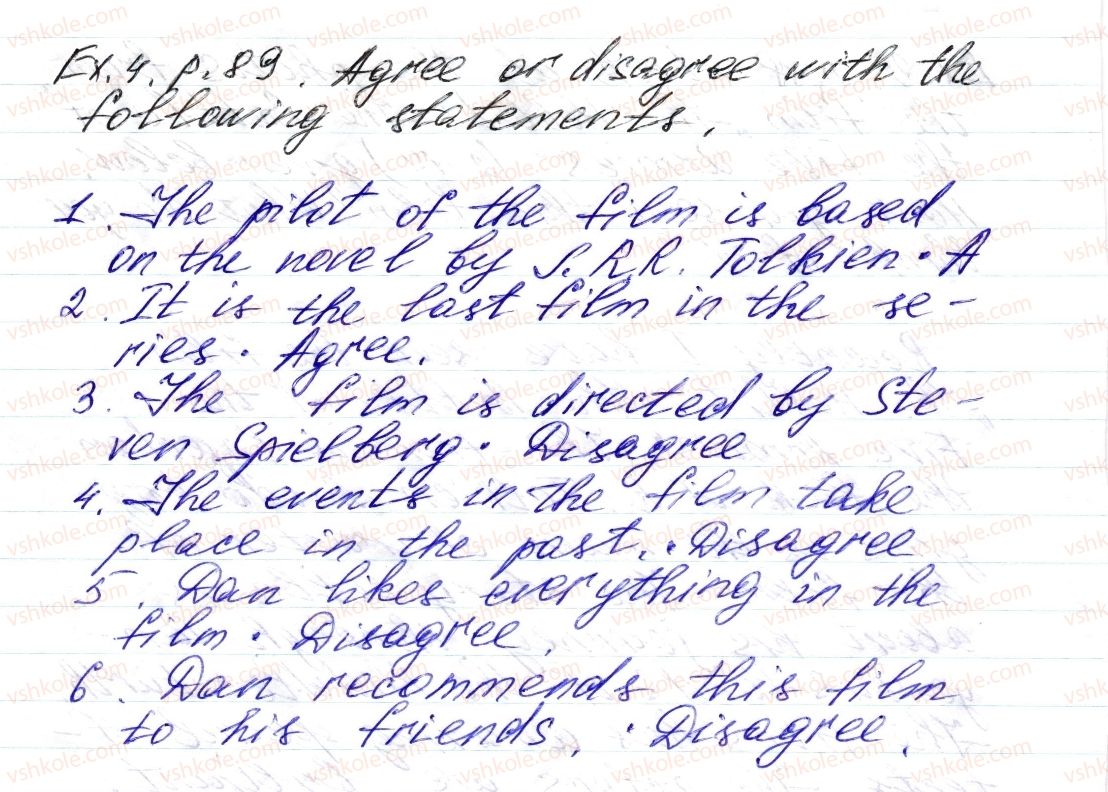 Ex. 4. p. 89. Agree or disagree with the
following statements.
1. The pilot of the film is based
on the novel by J. R.R. Tolkien. A
2. It is the last film in the se-
ries. Agree.
3. The film is directed by Ste-
ven Spielberg. Disagree
4. The events in the film take
place in the past. Disagree
5. Dan likes everything in the
film. Disagree.
6. Dan recommends this film
to his friends. Disagree.
vshkole.com